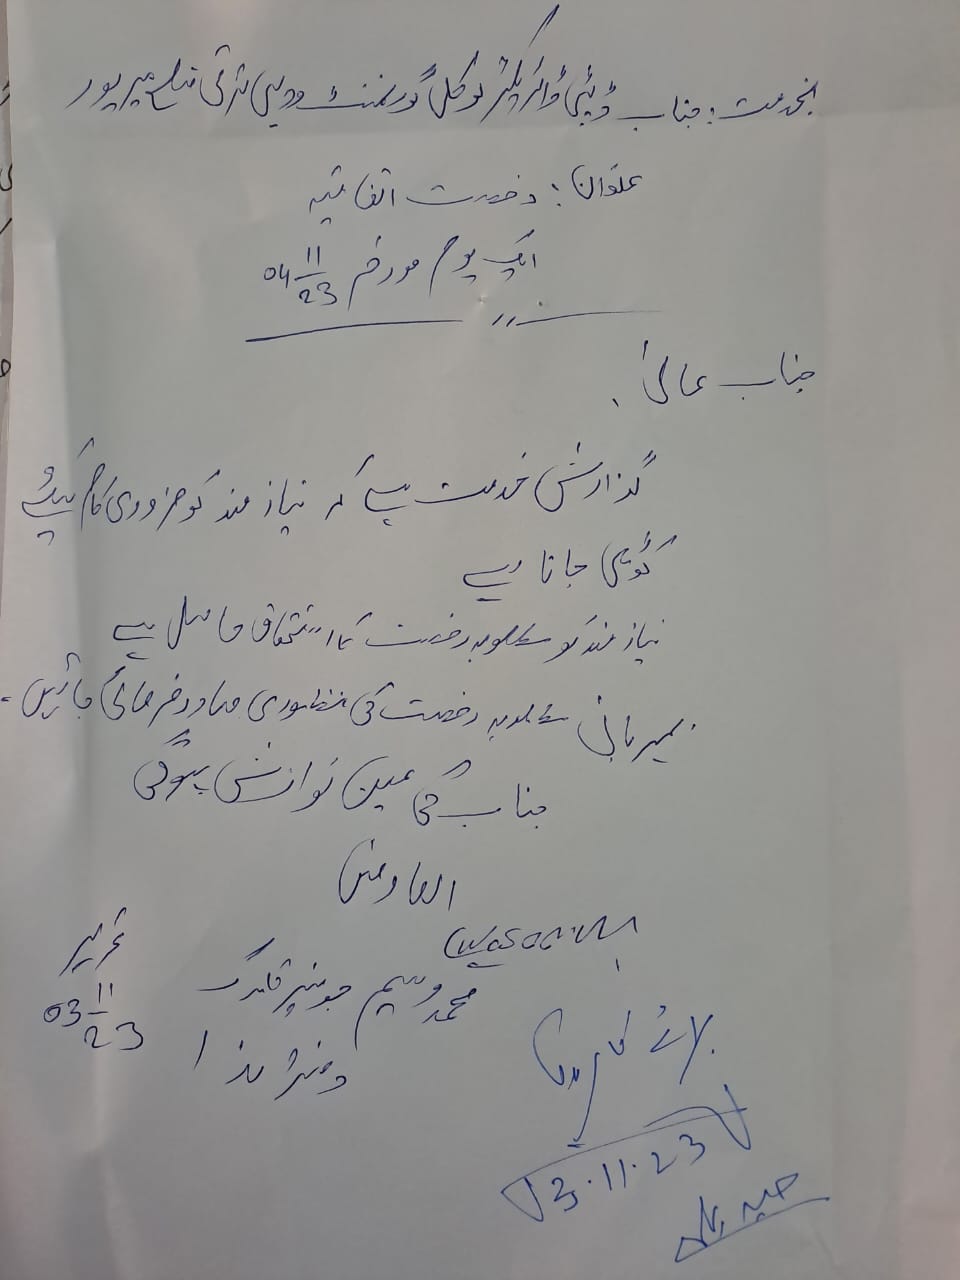 بخدمت: جناب ڈپٹی ڈائریکٹر لوکل گورنمنٹ و دیہی ترقی ضلع میرپور
عنوان: رخصت اتفاقیہ
ایک یوم مورخہ 04/11/23
جناب عالیٰ،
گذارش خدمت ہے کہ نیاز مند کو ضروری کام کیلئے
کوٹلی جانا ہے
نیاز مند کو مطلوبہ رخصت کا استحقاق حاصل ہے
بمہربانی مطلوبہ رخصت کی منظوری صادر فرمائی جائیں۔
جناب کی عین نوازش ہوگی
العارض
Waseem
محمد وسیم جونیئر کلرک
دفتر ہذا
تحریر
03/11/23
برائے
3.11.23